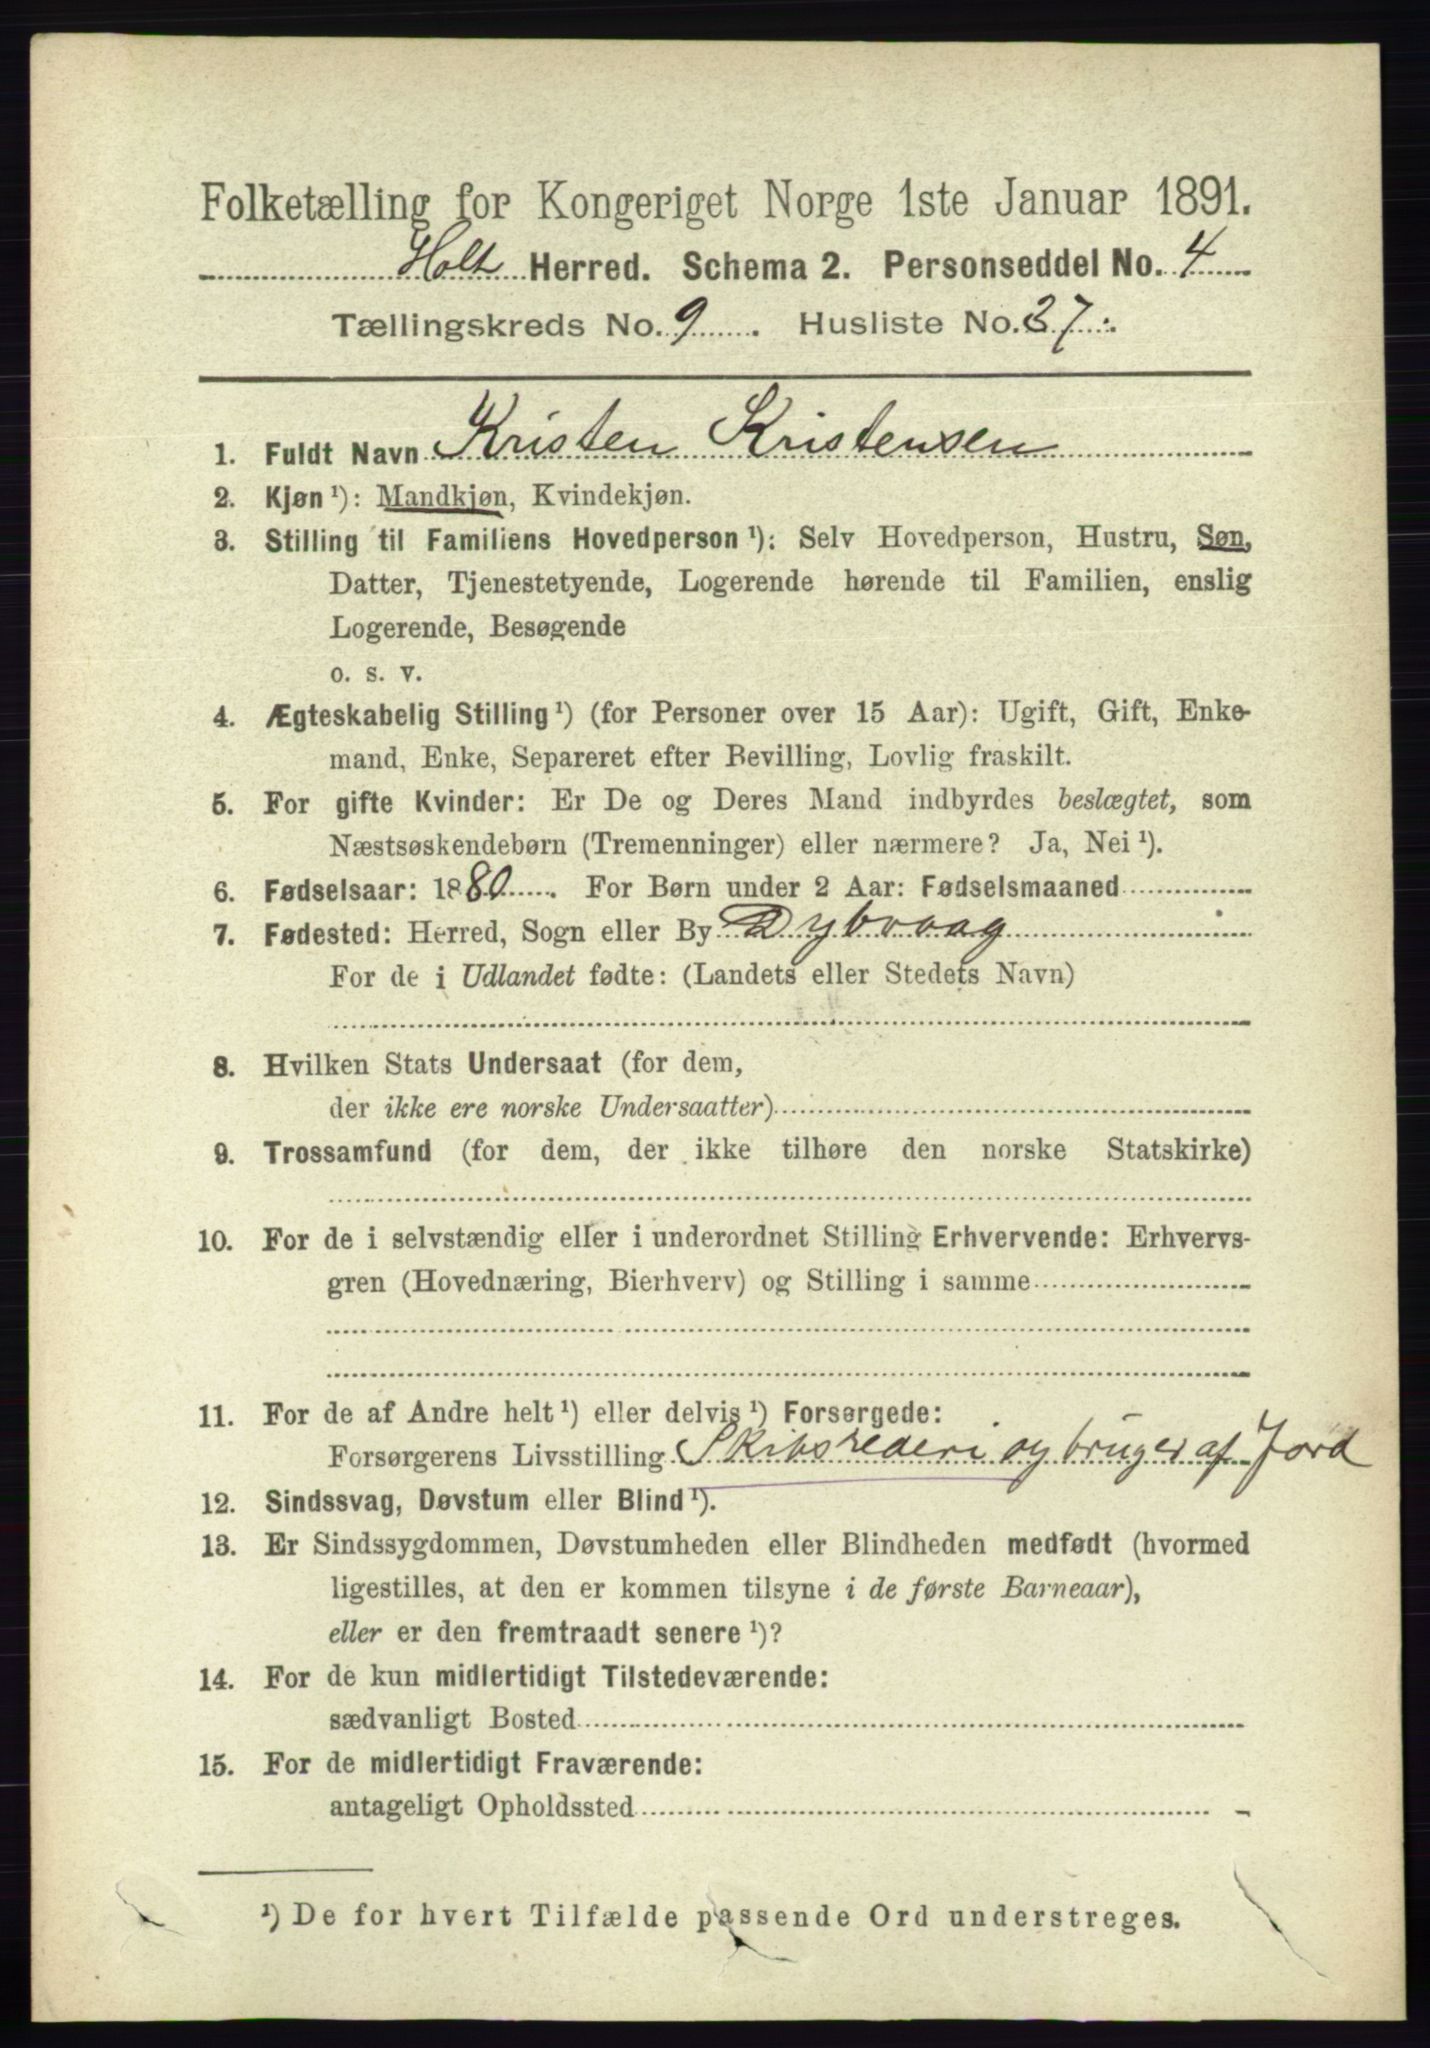 Folketælling for Kongeriget Norge 1ste Januar 1891.
Holt Herred. Schema 2. Personseddel No. 4
Tællingskreds No. 9. Husliste No. 37.
1. Fuldt Navn Kristen Kristensen
2. Kjøn ¹): Mandkjøn, Kvindekjøn.
3. Stilling til Familiens Hovedperson ¹): Selv Hovedperson, Hustru, Søn,
Datter, Tjenestetyende, Logerende hørende til Familien, enslig
Logerende, Besøgende
o. s. v.
4. Ægteskabelig Stilling ¹) (for Personer over 15 Aar): Ugift, Gift, Enke-
mand, Enke, Separeret efter Bevilling, Lovlig fraskilt.
5. For gifte Kvinder: Er De og Deres Mand indbyrdes beslægtet, som
Næstsøskendebørn (Tremenninger) eller nærmere? Ja, Nei ¹).
6. Fødselsaar: 1880. For Børn under 2 Aar: Fødselsmaaned
7. Fødested: Herred, Sogn eller By Dybvaag
For de i Udlandet fødte: (Landets eller Stedets Navn)
8. Hvilken Stats Undersaat (for dem,
der ikke ere norske Undersaatter)
9. Trossamfund (for dem, der ikke tilhøre den norske Statskirke)
10. For de i selvstændig eller i underordnet Stilling Erhvervende: Erhvervs-
gren (Hovednæring, Bierhverv) og Stilling i samme
11. For de af Andre helt ¹) eller delvis ¹) Forsørgede:
Forsørgerens Livsstilling Skibsrederi og bruger af Jord
12. Sindssvag, Døvstum eller Blind ¹).
13. Er Sindssygdommen, Døvstumheden eller Blindheden medfødt (hvormed
ligestilles, at den er kommen tilsyne i de første Barneaar),
eller er den fremtraadt senere ¹)?
14. For de kun midlertidigt Tilstedeværende:
sædvanligt Bosted
15. For de midlertidigt Fraværende:
antageligt Opholdssted
¹) De for hvert Tilfælde passende Ord understreges.